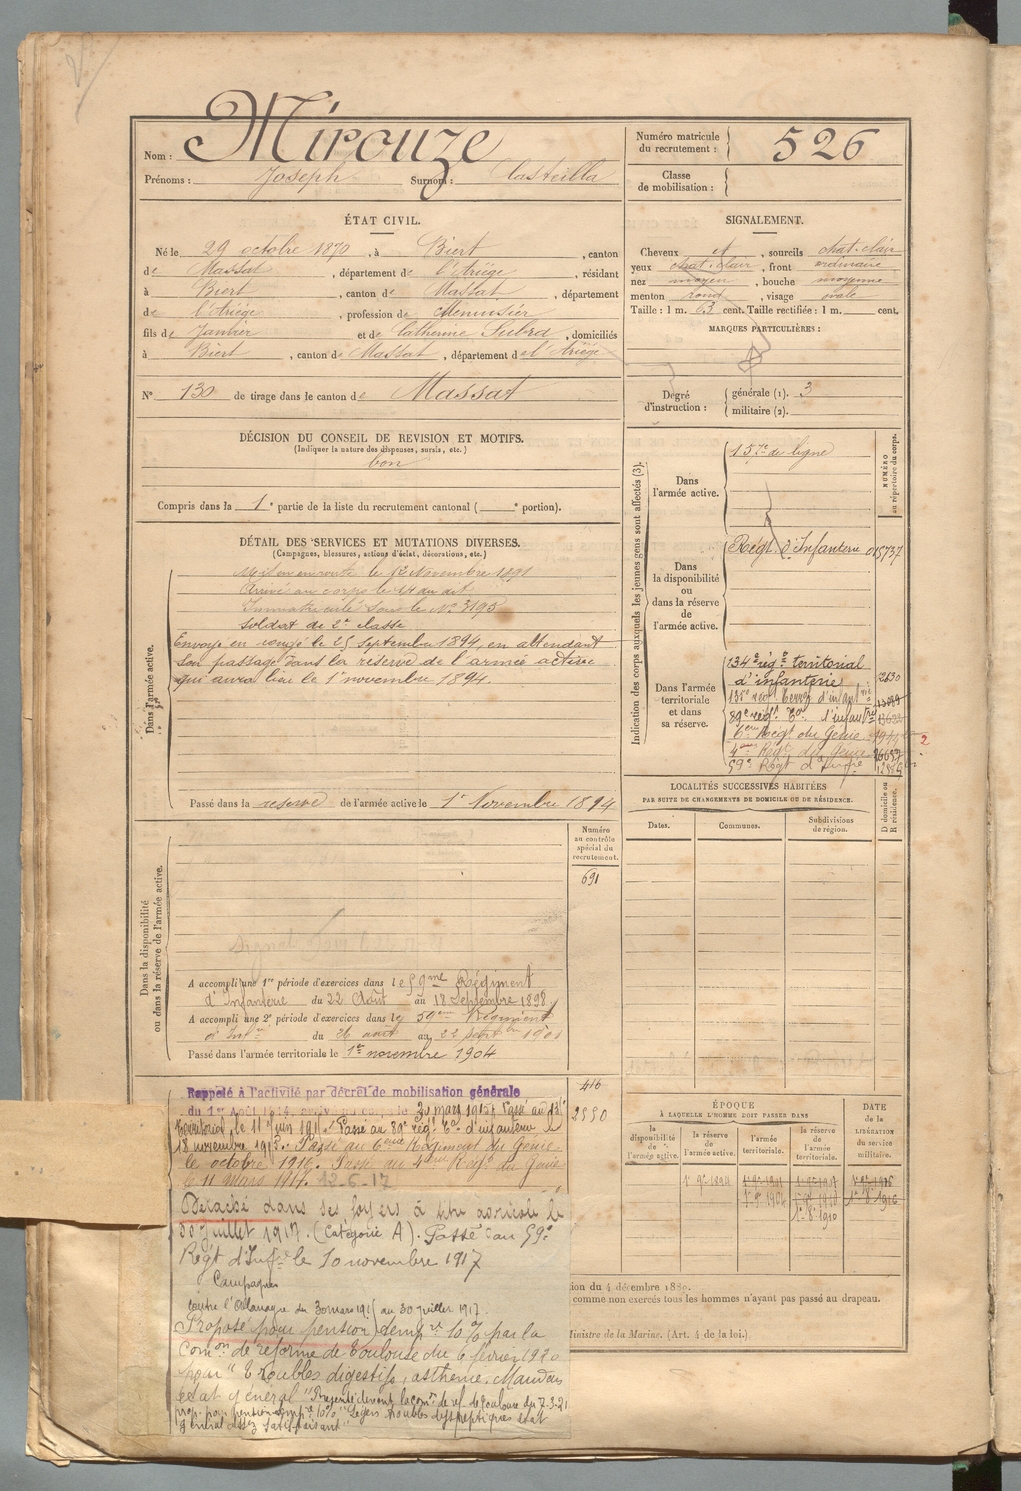 Nom : Mirouze
Prénoms : Joseph Surnom : Casteilla
Numéro matricule du recrutement : 526
Classe de mobilisation :
ÉTAT CIVIL.
Né le 29 octobre 1870, à Biert, canton
de Massat, département de l'Ariège, résidant
à Biert, canton de Massat, département
de l'Ariège, profession de Menuisier
fils de Janvier et de Catherine Subra, domiciliés
à Biert, canton de Massat, département de l'Ariège
N° 130 de tirage dans le canton de Massat
SIGNALEMENT.
Cheveux et, sourcils chat. clair
yeux chat. clair, front ordinaire
nez moyen, bouche moyenne
menton rond, visage ovale
Taille : 1 m. 63 cent. Taille rectifiée : 1 m. cent.
MARQUES PARTICULIÈRES :
Degré d'instruction : générale (1). 3
militaire (2).
DÉCISION DU CONSEIL DE REVISION ET MOTIFS.
(Indiquer la nature des dispenses, sursis, etc.)
bon
Compris dans la 1e partie de la liste du recrutement cantonal ( e portion).
DÉTAIL DES SERVICES ET MUTATIONS DIVERSES.
(Campagnes, blessures, actions d'éclat, décorations, etc.)
Dans l'armée active.
Mis en route le 12 Novembre 1891
Arrivé au corps le 14 au dit
Immatriculé sous le N° 3195
Soldat de 2e classe
Envoyé en congé le 25 septembre 1894, en attendant
son passage dans la réserve de l'armée active
qui aura lieu le 1er novembre 1894.
Passé dans la réserve de l'armée active le 1er Novembre 1894
Indication des corps auxquels les jeunes gens sont affectés (3).
NUMÉRO au répertoire du corps.
Dans l'armée active.
157e de ligne
Dans la disponibilité ou dans la réserve de l'armée active.
Régt d'Infanterie 015737
Dans l'armée territoriale et dans sa réserve.
134e régt territorial
d'infanterie 2130
135e régt Territ d'infanterie
89e régt Ter d'infantrie
6ème Régt du Génie
4ème Régt du Génie
59e Régt d'Infrie
2
LOCALITÉS SUCCESSIVES HABITÉES
PAR SUITE DE CHANGEMENTS DE DOMICILE OU DE RÉSIDENCE.
Dates. Communes. Subdivisions de région. D domicile ou R résidence.
Dans la disponibilité ou dans la réserve de l'armée active.
Numéro au contrôle spécial du recrutement.
691
A accompli une 1re période d'exercices dans le 59me Régiment
d'Infanterie du 22 Août au 18 Septembre 1898
A accompli une 2e période d'exercices dans le 59ème Régiment
d'Infie du 26 août au 22 septbre 1901
Passé dans l'armée territoriale le 1er novembre 1904
416
2880
Rappelé à l'activité par décret de mobilisation générale
du 1er Août 1914, le 30 mars 1915. Passé au 135e
territorial, le 11 juin 191. Passé au 89e régt Ter d'infanterie le
18 novembre 1915. Passé au 6ème Régiment du Génie
le octobre 1916. Passé au 4ème Régt du Génie
le 11 mars 1917. 12-6-17
Détaché dans ses foyers à titre agricole le
30 juillet 1917. (Catégorie A). Passé au 59e
Régt d'Infrie le 10 novembre 1917
Campagnes
contre l'Allemagne du 30 mars 1915 au 30 juillet 1917.
Proposé pour pension temp re 10% par la
Comon de réforme de Toulouse du 6 février 1920
pour "Troubles digestifs, asthénie. Mauvais
état général" Présenté devant la comon de réf. de Toulouse du 7-3-21
prop. pour pension temp re 10% "Légers troubles dyspeptiques état
général assez satisfaisant"
ÉPOQUE
À LAQUELLE L'HOMME DOIT PASSER DANS
la disponibilité de l'armée active. la réserve de l'armée active. l'armée territoriale. la réserve de l'armée territoriale.
DATE de la LIBÉRATION du service militaire.
1er 9bre 1894
tion du 4 décembre 1889.
comme non exercés tous les hommes n'ayant pas passé au drapeau.
Ministre de la Marine. (Art. 4 de la loi.)